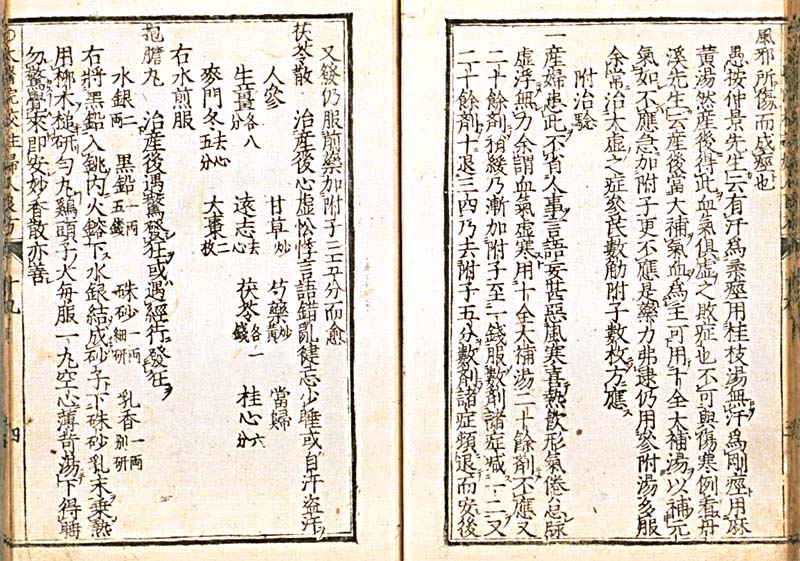 風邪所傷而成痙也
愚按仲景先生云有汗爲柔痙用桂枝湯無汗爲剛痙用麻
黄湯然産後得此血氣俱虚之敗症也不可與傷寒例看丹
溪先生云産後當大補氣血爲主可用十全大補湯以補元
氣如不應急加附子更不應是藥力弗逮仍用參附湯多服
余常治大虚之症參芪數觔附子數枚方應
附治驗
一産婦患此不省人事言語妄甚惡風寒喜熱飲形氣倦怠脉
虚浮無力余謂血氣虚寒用十全大補湯二十餘剤不應又
二十餘剤稍緩乃漸加附子至一錢服數剤諸症减一二又
二十餘剤十退三四乃去附子五分數剤諸症頻退而安後
又發仍服前藥加附子三五分而愈
茯苓散 治産後心虚忪悸言語錯亂健忘少睡或自汗盗汗
人參 甘草炒 芍藥炒黄 當歸
生薑各八分 遠志去心 茯苓各一錢 桂心六分
麥門冬去心五分 大棗二枚
右水煎服
龍膽丸 治産後遇驚發狂或遇經行發狂
水銀二両 黒鉛一両五錢 硃砂一両細研 乳香一両別研
右將黒鉛入銚内火鎔下水銀結成砂子下硃砂乳末乗熱
用柳木槌研匀丸鷄頭子大毎服一丸空心薄荷湯下得睡
勿驚覺末即安妙香散亦善
十九